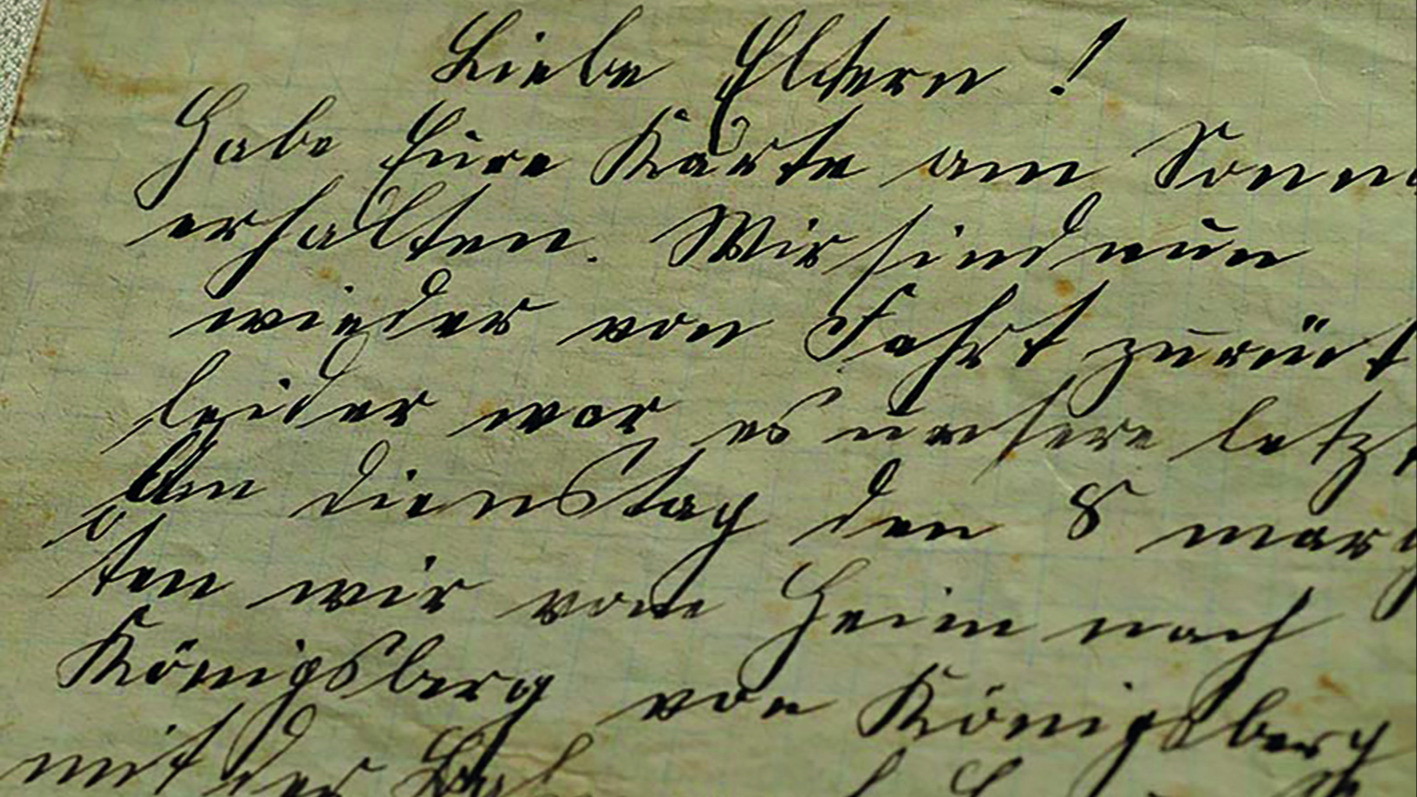 Liebe Eltern!
Habe Eure Karte am Sonn
erhalten. Wir sind nun
wieder von Fahrt zurück
leider war es unsere letz
Am dienstag den 8 marsch
ten wir vom Heim nach
Königsberg von Königsberg
mit der Bahn